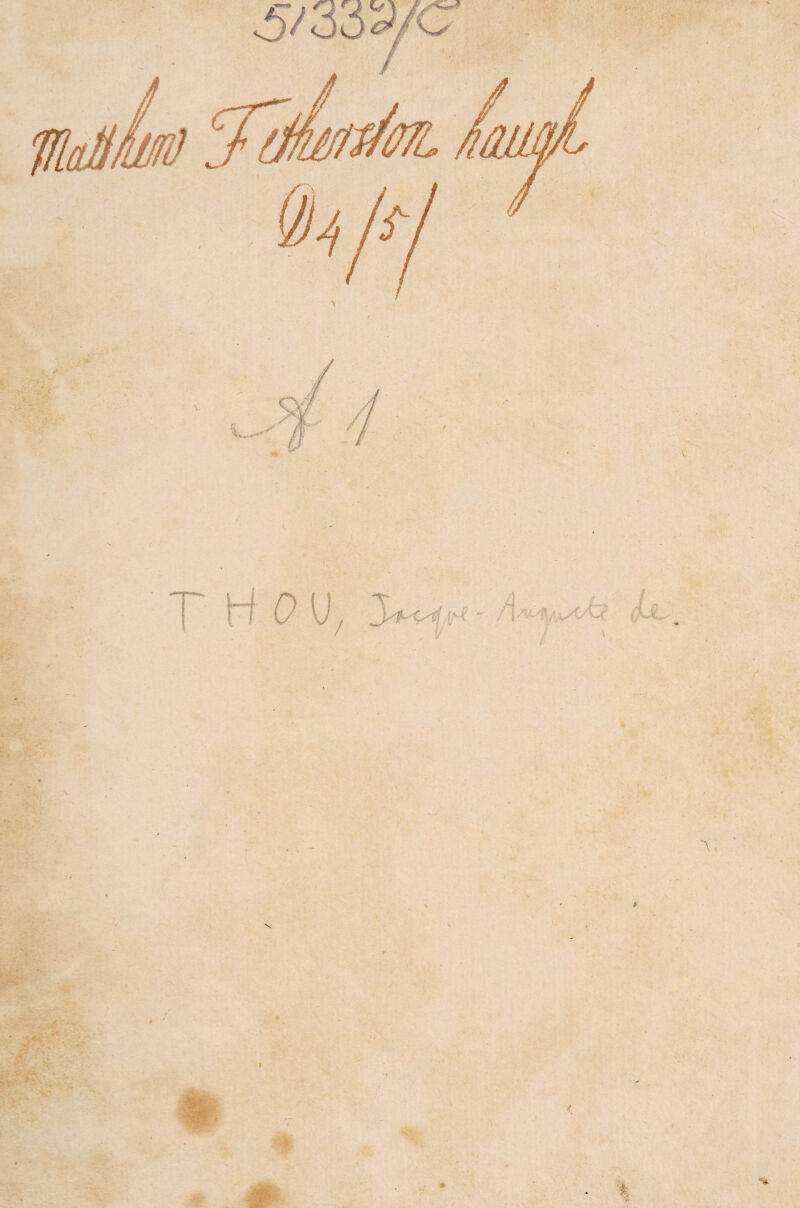 51332/C
Matthew Fetherston haugh
D4/5/
A 1
THOU, Jacque-Auguste de.